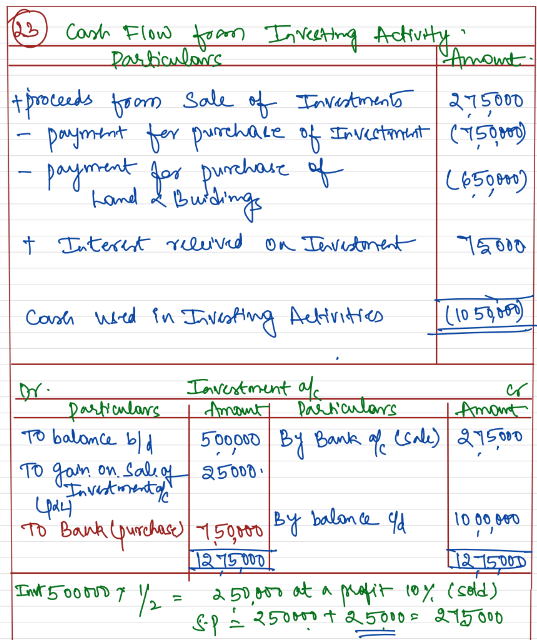 23 Cash Flow from Investing Activity.
Particulars Amount.
+ proceeds from Sale of Investments 275000
- payment for purchase of Investment (750,000)
- payment for purchase of
Land & Buidings (650,000)
+ Interest received on Investment 75000
Cash used in Investing Activities (1050,000)
Dr. Investment a/c Cr
Particulars Amount Particulars Amount
To balance b/d 500000 By Bank a/c (sale) 275000
To gain on Sale of 25000.
Investment a/c
(P&L)
To Bank (purchase) 750,000 By balance c/d 1000,000
1275000 1275000
Invt 500000 x 1/2 = 250,000 at a profit 10% (sold)
S.P = 250000 + 25000 = 275000